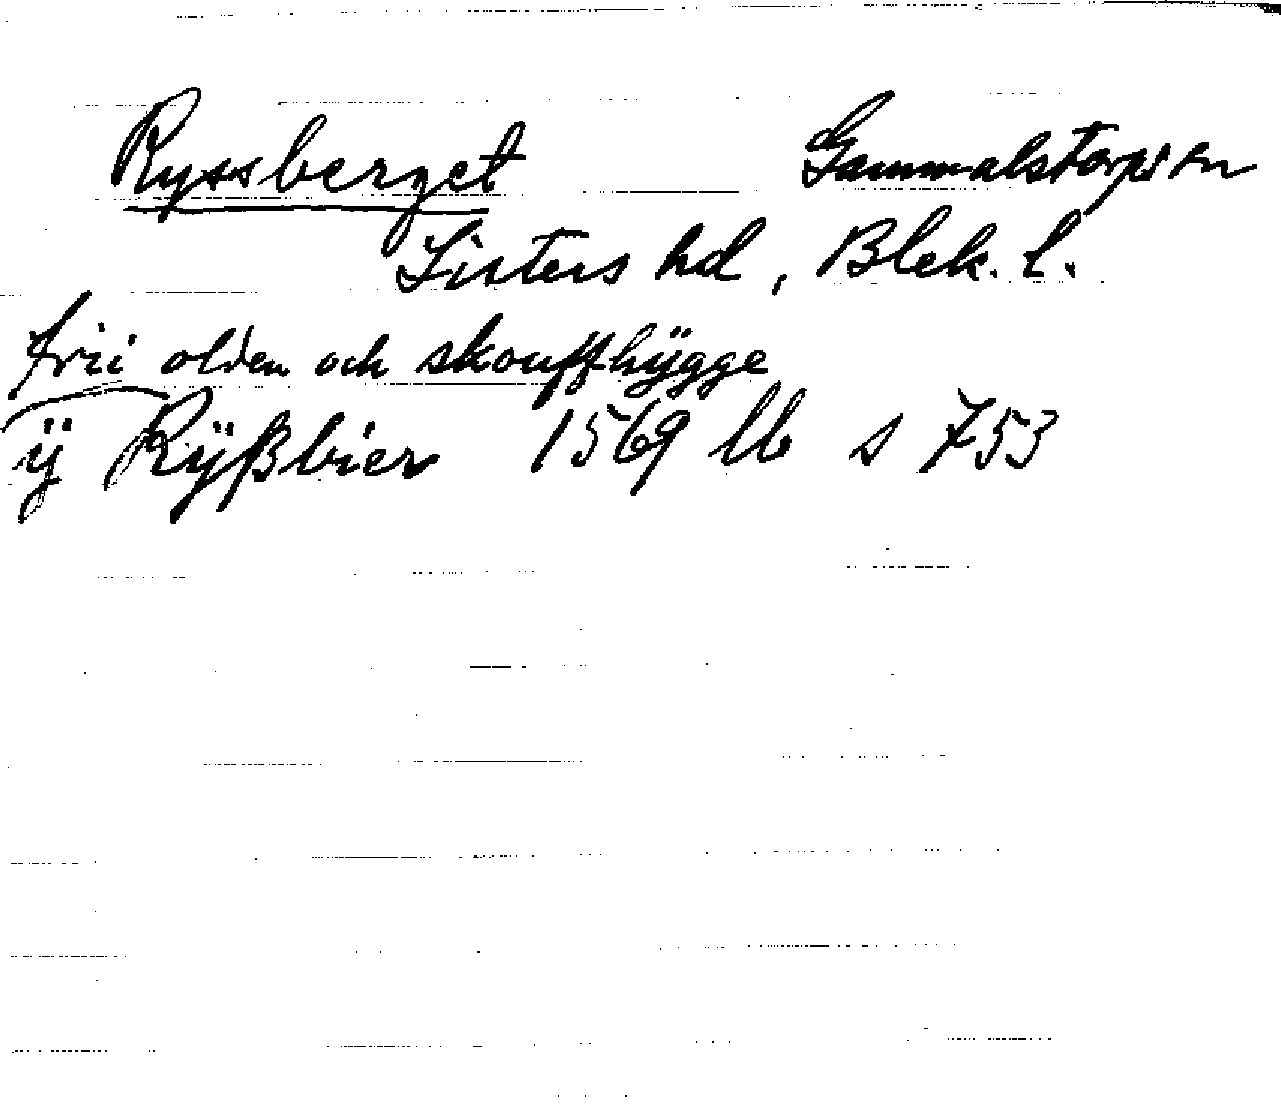 Ryssberget Gammalstorps sn
Listers hd, Blek. l.
frii olden och skouffhÿgge
ÿ Rÿßbier 1569 lb s 753